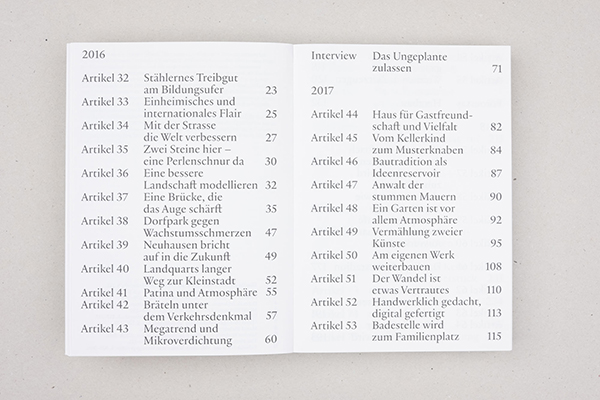 2016
Artikel 32 Stählernes Treibgut
am Bildungsufer 23
Artikel 33 Einheimisches und
internationales Flair 25
Artikel 34 Mit der Strasse
die Welt verbessern 27
Artikel 35 Zwei Steine hier –
eine Perlenschnur da 30
Artikel 36 Eine bessere
Landschaft modellieren 32
Artikel 37 Eine Brücke, die
das Auge schärft 35
Artikel 38 Dorfpark gegen
Wachstumsschmerzen 47
Artikel 39 Neuhausen bricht
auf in die Zukunft 49
Artikel 40 Landquarts langer
Weg zur Kleinstadt 52
Artikel 41 Patina und Atmosphäre 55
Artikel 42 Bräteln unter
dem Verkehrsdenkmal 57
Artikel 43 Megatrend und
Mikroverdichtung 60
Interview Das Ungeplante
zulassen 71
2017
Artikel 44 Haus für Gastfreund-
schaft und Vielfalt 82
Artikel 45 Vom Kellerkind
zum Musterknaben 84
Artikel 46 Bautradition als
Ideenreservoir 87
Artikel 47 Anwalt der
stummen Mauern 90
Artikel 48 Ein Garten ist vor
allem Atmosphäre 92
Artikel 49 Vermählung zweier
Künste 95
Artikel 50 Am eigenen Werk
weiterbauen 108
Artikel 51 Der Wandel ist
etwas Vertrautes 110
Artikel 52 Handwerklich gedacht,
digital gefertigt 113
Artikel 53 Badestelle wird
zum Familienplatz 115